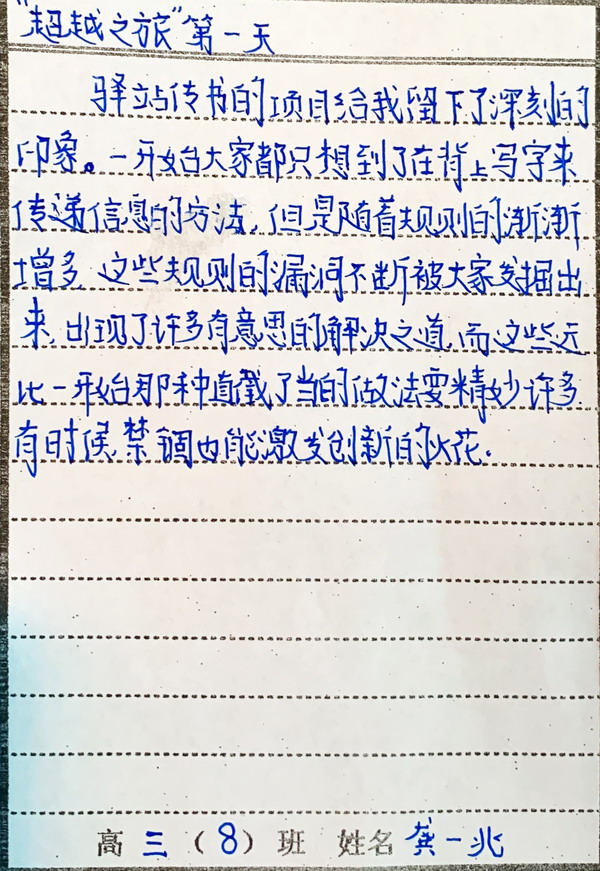 “超越之旅”第一天
驿站传书的项目给我留下了深刻的
印象。一开始大家都只想到了在背上写字来
传递信息的方法,但是随着规则的渐渐
增多,这些规则的漏洞不断被大家发掘出
来,出现了许多有意思的解决之道,而这些远
比一开始那种直截了当的做法要精妙许多
有时候,禁锢也能激发创新的火花.
高三(8)班 姓名 龚一兆